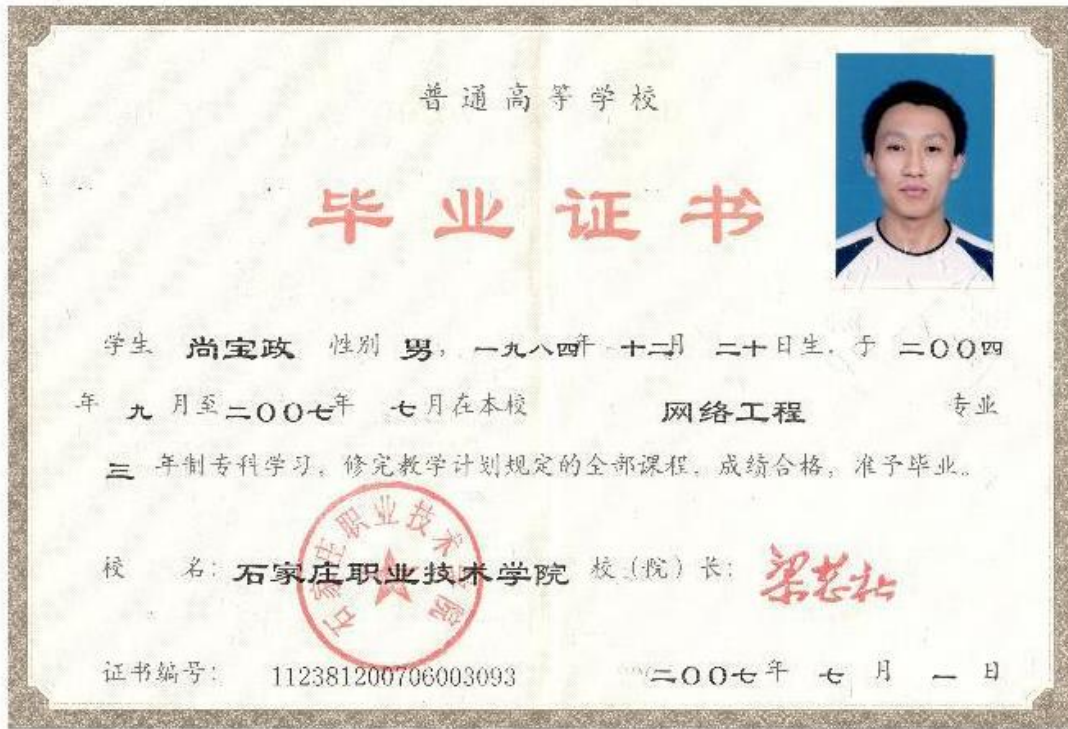 普通高等学校
毕业证书
学生 尚宝政 性别 男, 一九八四年 十二月 二十日生, 于 二〇〇四
年 九 月至二〇〇七年 七月在本校 网络工程 专业
三 年制专科学习, 修完教学计划规定的全部课程, 成绩合格, 准予毕业。
校 名: 石家庄职业技术学院 校(院)长:
石家庄职业技术学院
证书编号: 112381200706003093 二〇〇七年 七 月 一 日